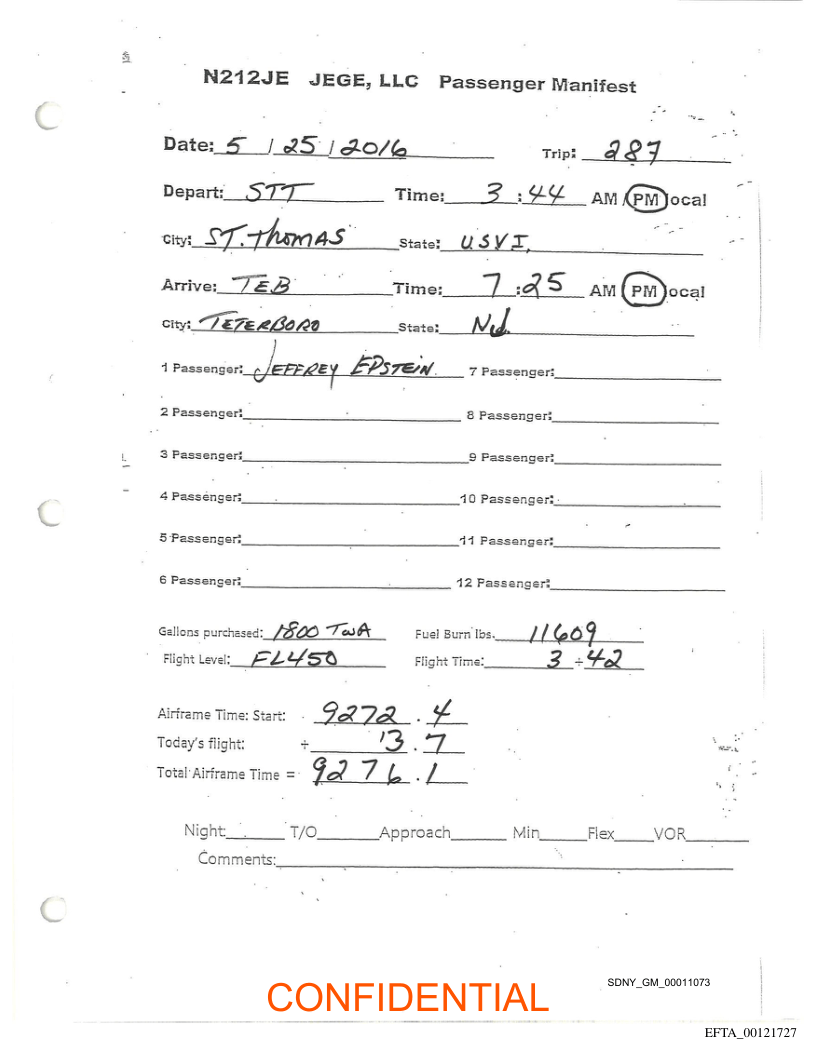 N212JE JEGE, LLC Passenger Manifest
Date: 5 / 25 / 2016 Trip: 287
Depart: STT Time: 3:44 AM / PM local
City: ST. THOMAS State: USVI.
Arrive: TEB Time: 7:25 AM PM local
City: TETERBORO State: NJ.
1 Passenger: JEFFREY EPSTEIN 7 Passenger:
2 Passenger: 8 Passenger:
3 Passenger: 9 Passenger:
4 Passenger: 10 Passenger:
5 Passenger: 11 Passenger:
6 Passenger: 12 Passenger:
Gallons purchased: 1800 Fuel Burn lbs. 11609
Flight Level: FL450 Flight Time: 3 ÷ 42
Airframe Time: Start: 9272.4
Today's flight: ÷ 3.7
Total Airframe Time = 9276.1
Night: T/O Approach Min Flex VOR
Comments:
SDNY_GM_00011073
CONFIDENTIAL
EFTA_00121727